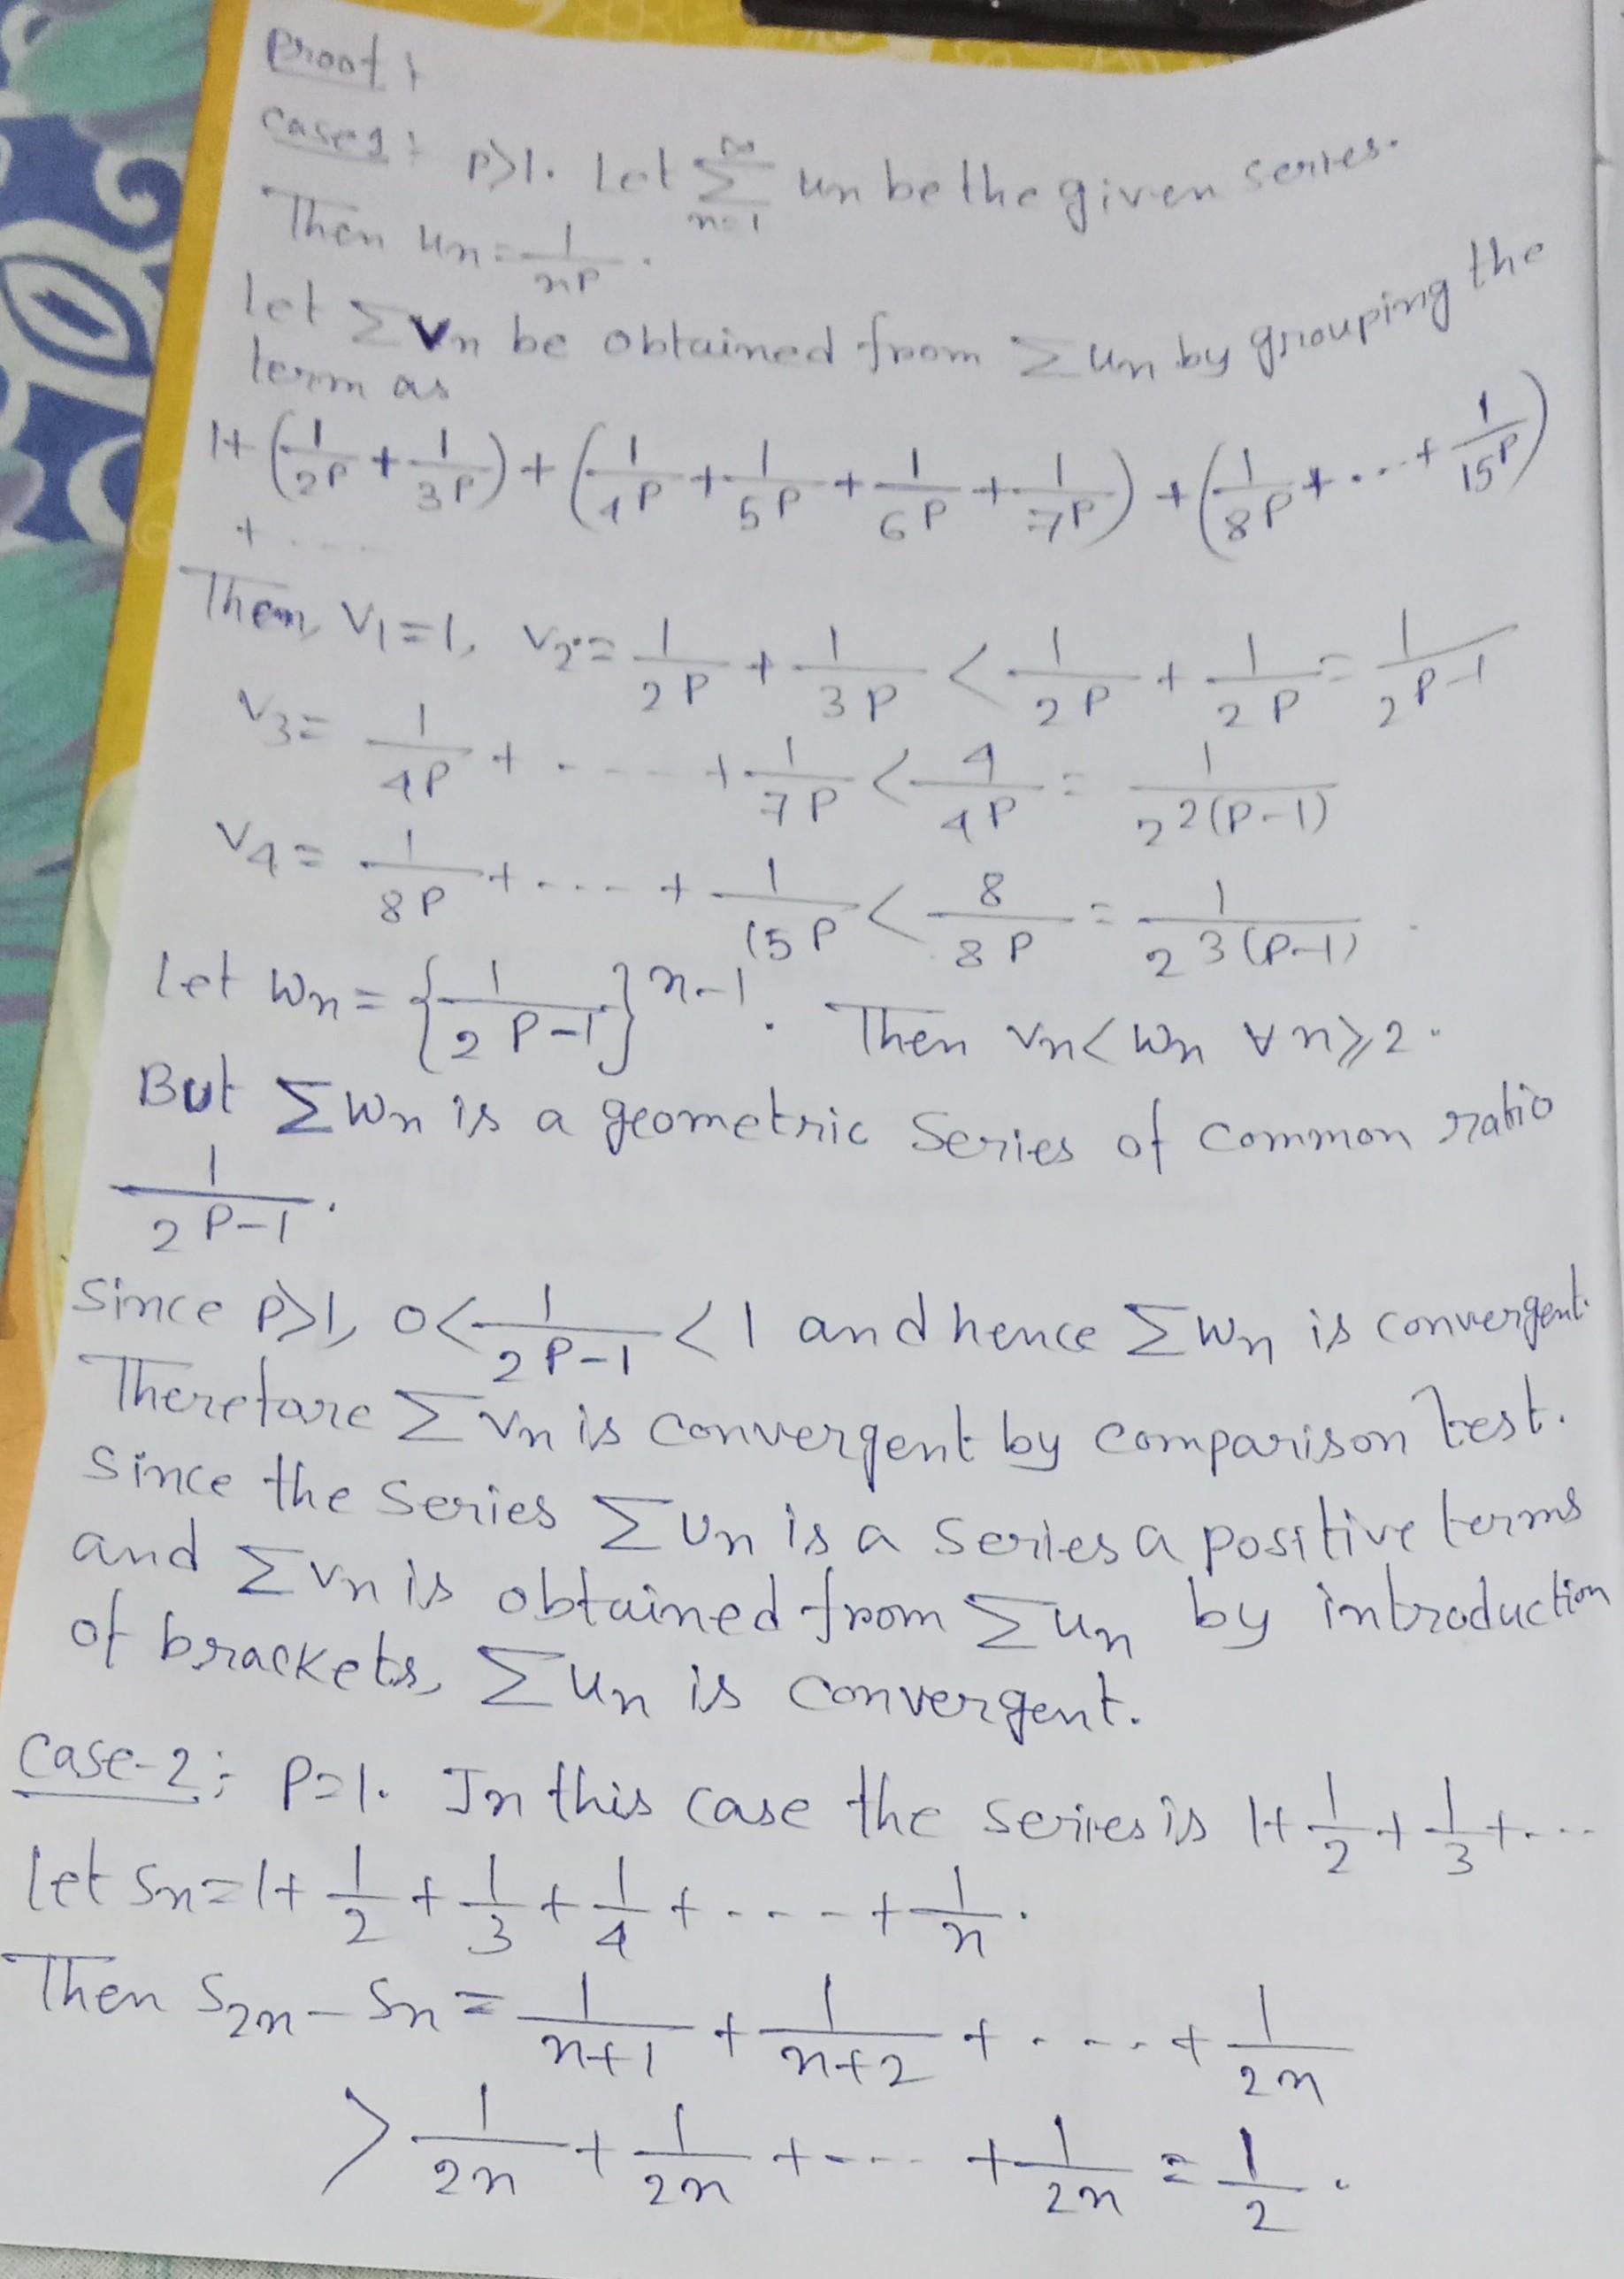 Proof :
Case 1 : P>1. Let ∑_{n=1}^{∞} un be the given series.
Then un = 1/n^P .
Let ∑vn be obtained from ∑un by grouping the
term as
1+ (1/2^P + 1/3^P) + (1/4^P + 1/5^P + 1/6^P + 1/7^P) + (1/8^P + ... + 1/15^P)
+ ....
Then, v1=1, v2 = 1/2^P + 1/3^P < 1/2^P + 1/2^P = 1/2^{P-1}
v3 = 1/4^P + ..... + 1/7^P < 4/4^P = 1/2^{2(P-1)}
v4 = 1/8^P + .... + 1/15^P < 8/8^P = 1/2^{3(P-1)} .
Let wn = {1/2^{P-1}}^{n-1} . Then vn < wn ∀ n ≥ 2 .
But ∑wn is a geometric series of common ratio
1/2^{P-1} .
Since P>1, 0 < 1/2^{P-1} < 1 and hence ∑wn is convergent.
Therefore ∑vn is convergent by comparison test.
Since the series ∑un is a series a positive terms
and ∑vn is obtained from ∑un by introduction
of brackets, ∑un is convergent.
Case-2 : P=1. In this case the series is 1+ 1/2 + 1/3 + ...
Let Sn = 1+ 1/2 + 1/3 + 1/4 + .... + 1/n .
Then S2n - Sn = 1/(n+1) + 1/(n+2) + .... + 1/2n
> 1/2n + 1/2n + .... + 1/2n = 1/2 .